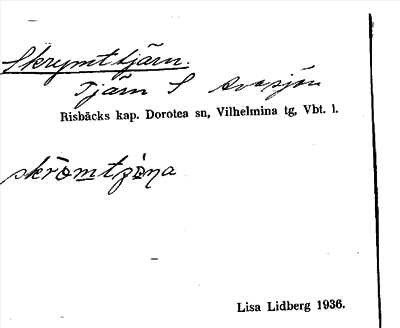 Skrymttjärn.
Tjärn S Avasjön
Risbäcks kap. Dorotea sn, Vilhelmina tg, Vbt. l.
skrömtjɵ̀ṇa
Lisa Lidberg 1936.